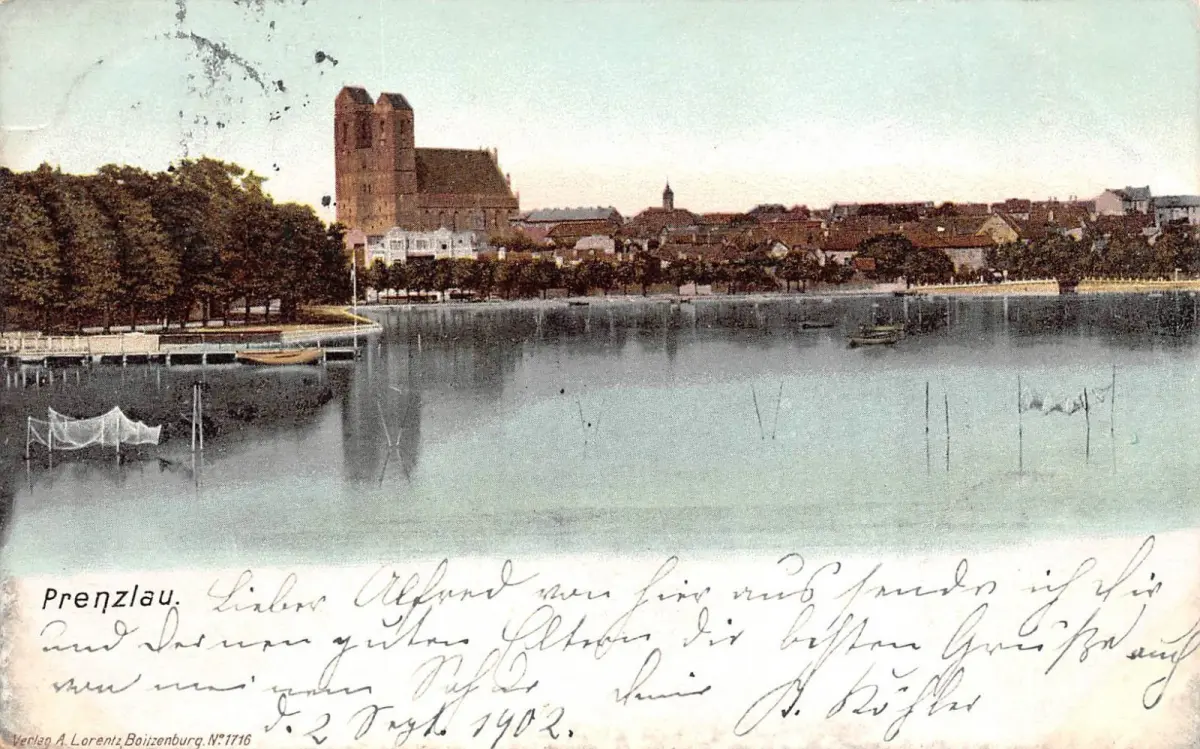 Prenzlau.
Lieber Alfred von hier aus sende ich Dir
und deinen guten Eltern die besten Grüße auch
von meinem
d. 2 Sept. 1902. Köhler
Verlag A. Lorentz, Boitzenburg. Nº 1716